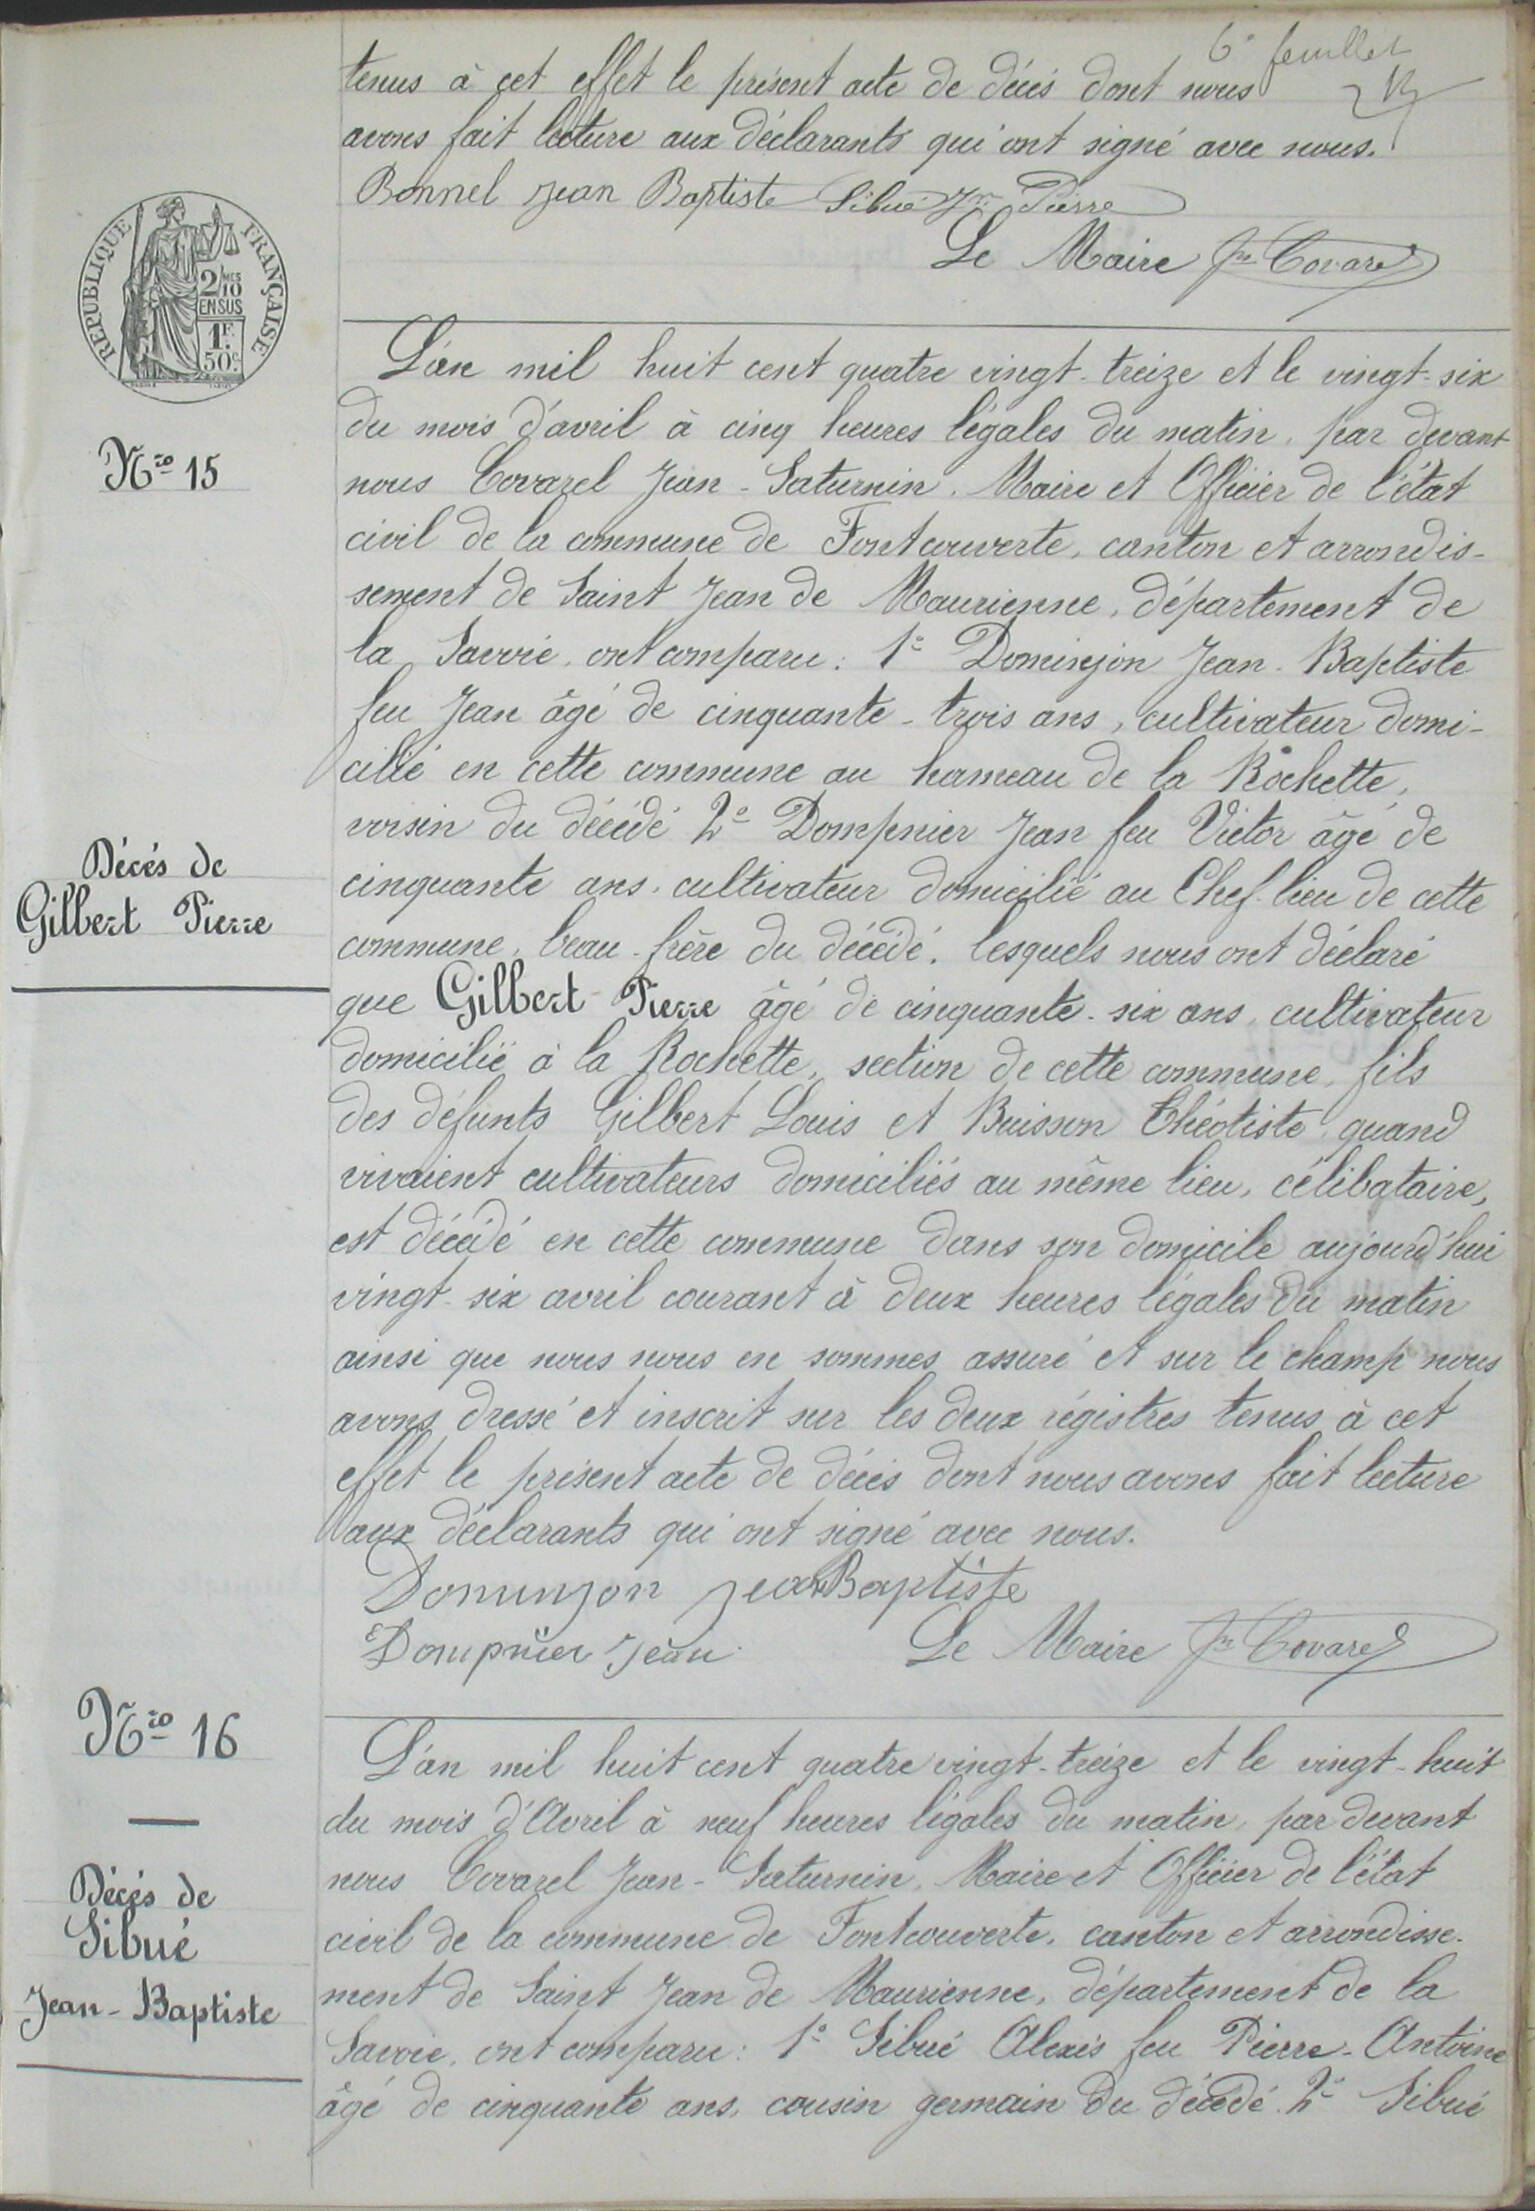 6e feuillet
tenus à cet effet le présent acte de décès dont nous
avons fait lecture aux déclarants qui ont signé avec nous.
Bonnel Jean Baptiste Sibué Jn Pierre
Le Maire Jn Covarel
REPUBLIQUE FRANÇAISE
2/10 MES
EN SUS
1 F.
50 c.
L'an mil huit cent quatre vingt-treize et le vingt-six
du mois d'avril à cinq heures légales du matin, par devant
Nro 15
nous Covarel Jean-Saturnin, Maire et Officier de l'état
civil de la commune de Fontcouverte, canton et arrondis-
sement de Saint Jean de Maurienne, département de
la Savoie, ont comparu : 1° Dominjon Jean-Baptiste
feu Jean âgé de cinquante-trois ans, cultivateur domi-
cilié en cette commune au hameau de la Rochette,
voisin du décédé 2° Dompnier Jean feu Victor âgé de
Décés de
Gilbert Pierre
cinquante ans, cultivateur domicilié au Chef-lieu de cette
commune, beau-frère du décédé, lesquels nous ont déclaré
que Gilbert Pierre âgé de cinquante-six ans, cultivateur
domicilié à la Rochette, section de cette commune, fils
des défunts Gilbert Louis et Buisson Théotiste, quand
vivaient cultivateurs domiciliés au même lieu, célibataire,
est décédé en cette commune dans son domicile aujourd'hui
vingt-six avril courant à deux heures légales du matin
ainsi que nous nous en sommes assuré et sur le champ nous
avons dressé et inscrit sur les deux régistres tenus à cet
effet le présent acte de décès dont nous avons fait lecture
aux déclarants qui ont signé avec nous.
Dominjon Jean Baptiste
Dompnier Jean Le Maire Jn Covarel
Nro 16
L'an mil huit cent quatre vingt-treize et le vingt-huit
du mois d'Avril à neuf heures légales du matin, par devant
nous Covarel Jean-Saturnin, Maire et Officier de l'état
Décés de
Sibué
Jean-Baptiste
civil de la commune de Fontcouverte, canton et arrondisse-
ment de Saint Jean de Maurienne, département de la
Savoie, ont comparu : 1° Sibué Alexis feu Pierre-Antoine
âgé de cinquante ans, cousin germain du décédé 2° Sibué